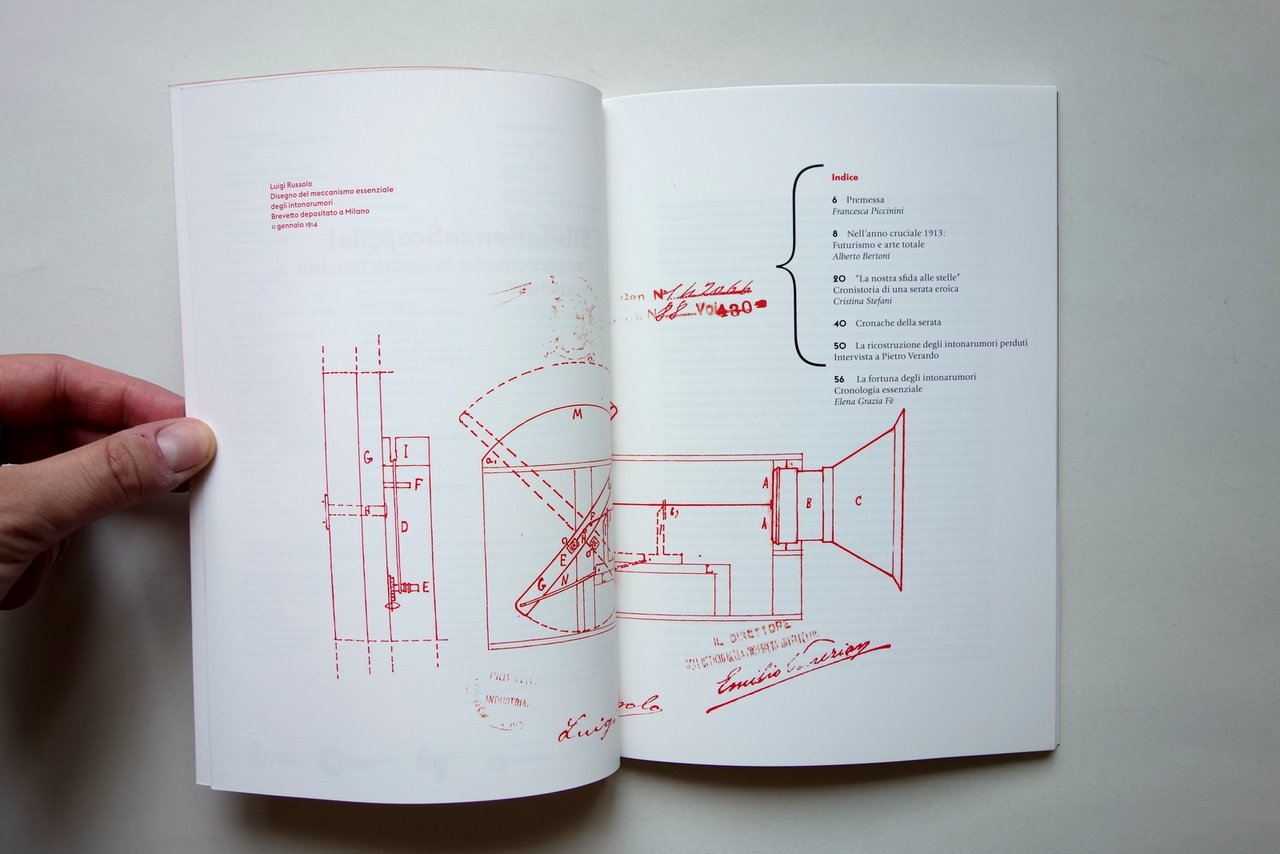 Luigi Russolo
Disegno del meccanismo essenziale
degli intonarumori
Brevetto depositato a Milano
11 gennaio 1914
Indice
6 Premessa
Francesca Piccinini
8 Nell'anno cruciale 1913:
Futurismo e arte totale
Alberto Bertoni
20 "La nostra sfida alle stelle"
Cronistoria di una serata eroica
Cristina Stefani
40 Cronache della serata
50 La ricostruzione degli intonarumori perduti
Intervista a Pietro Verardo
56 La fortuna degli intonarumori
Cronologia essenziale
Elena Grazia Fè
Vol 430
M
G I
F
D
E
A
B C
A
E
G N
IL DIRETTORE
Emilio
INDUSTRIA
Luig olo